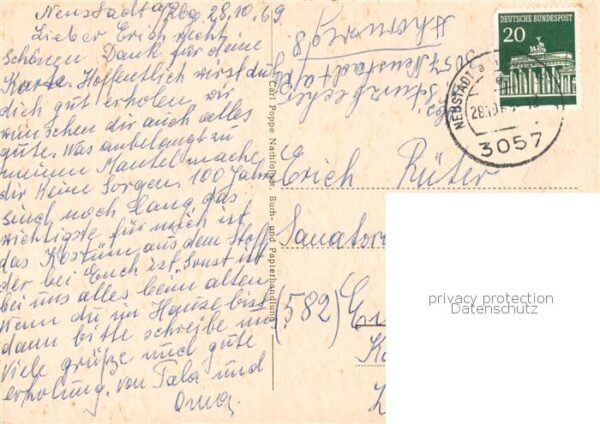 Neustadt a/Rbg 28.10.69
Lieber Erich recht
schönen Dank für deine
Karte. Hoffentlich wirst du
dich gut erholen, wir
wünschen dir auch alles
gute. Was anbelangt zu
meinen Mantel mache
dir keine Sorgen. 100 Jahr
sind noch lang, das
wichtigste für mich ist
das Kostüm aus dem Stoff
der bei Euch ist. Sonst ist
bei uns alles beim alten
Wenn du im Hause bist
dann bitte schreibe mir
Viele grüße und gute
erholung. von Tala und
Oma.
Carl Poppe Nachfolger, Buch- und Papierhandlung
3057 Neustadt a/Rbg
DEUTSCHE BUNDESPOST
20
NEUSTADT
28.10.6
3057
Erich Rüter
Sanator
(582)
privacy protection
Datenschutz